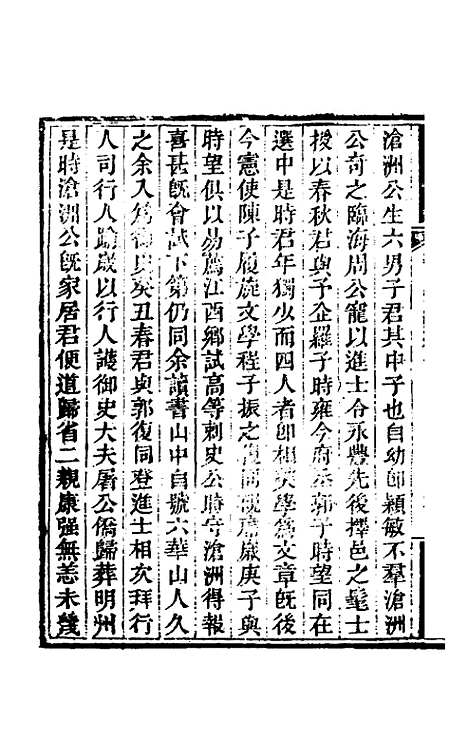 滄洲公生六男子君其中子也自幼卽穎敏不羣滄洲
公奇之臨海周公寵以進士令永豐先後擇邑之髦士
授以春秋君與予企羅子時雍今府丞郭子時望同在
選中是時君年獨少而四人者卽相英學爲文章旣後
今憲使陳子履旋文學程子振之復同硯席歲庚子與
時望俱以易薦江西鄉試高等刺史公時守滄洲得報
喜甚旣會試下第仍同余讀書山中自號六華山人久
之余入爲御史癸丑春君與郭復同登進士相次拜行
人司行人踰歲以行人護御史大夫屠公僑歸葬明州
是時滄洲公旣家居君便道歸省二親康强無恙未幾